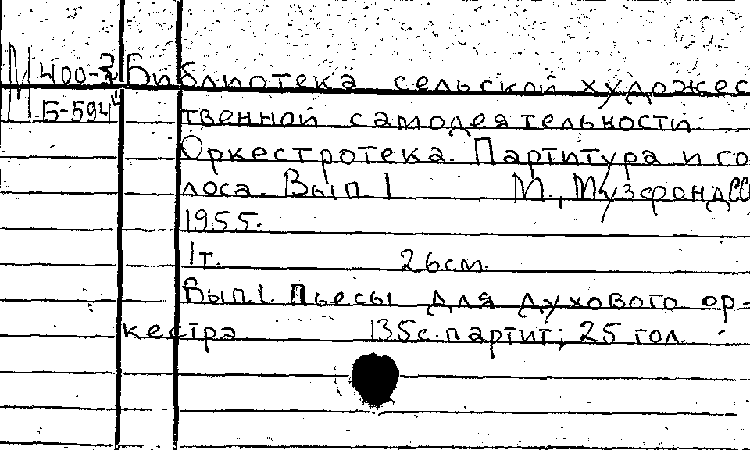 М 400-3 Библиотека сельской художес
Б-594 твенной самодеятельности.
Оркестротека. Партитура и го
лоса. Вып 1 М., Музфонд СС
1955.
1т. 26см.
Вып.1. Пьесы для духового ор-
кестра 135с. партит; 25 гол